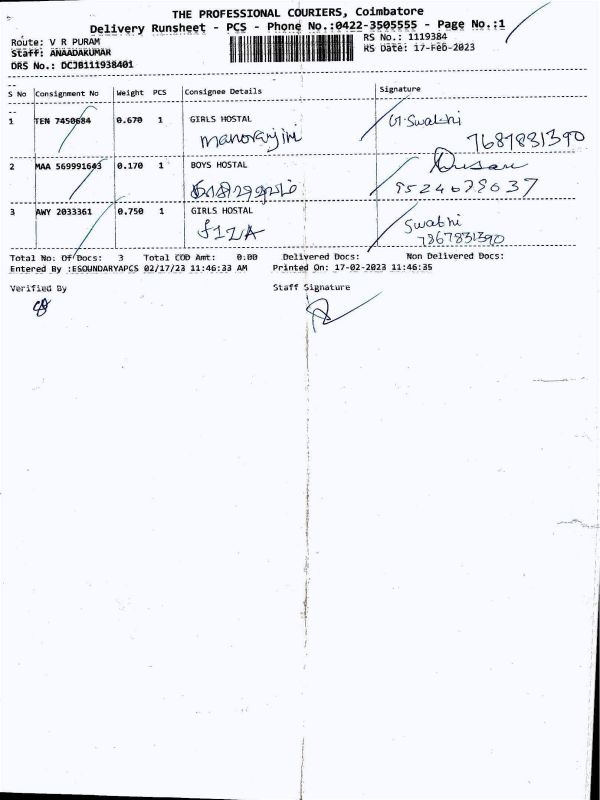 THE PROFESSIONAL COURIERS, Coimbatore
Delivery Runsheet - PCS - Phone No.:0422-3505555 - Page No.:1
Route: V R PURAM
RS No.: 1119384
Staff: ANAADAKUMAR
RS Date: 17-Feb-2023
DRS No.: DCJB111938401
S No Consignment No Weight PCS Consignee Details Signature
1 TEN 7450684 0.670 1 GIRLS HOSTAL G.Swathi
manoranjini 7687831390
2 MAA 569991643 0.170 1 BOYS HOSTAL
9524679037
3 AWY 2033361 0.750 1 GIRLS HOSTAL Swathi
fIZA 7867831390
Total No: Of Docs: 3 Total COD Amt: 0.00 Delivered Docs: Non Delivered Docs:
Entered By :ESOUNDARYAPCS 02/17/23 11:46:33 AM Printed On: 17-02-2023 11:46:35
Verified By Staff Signature